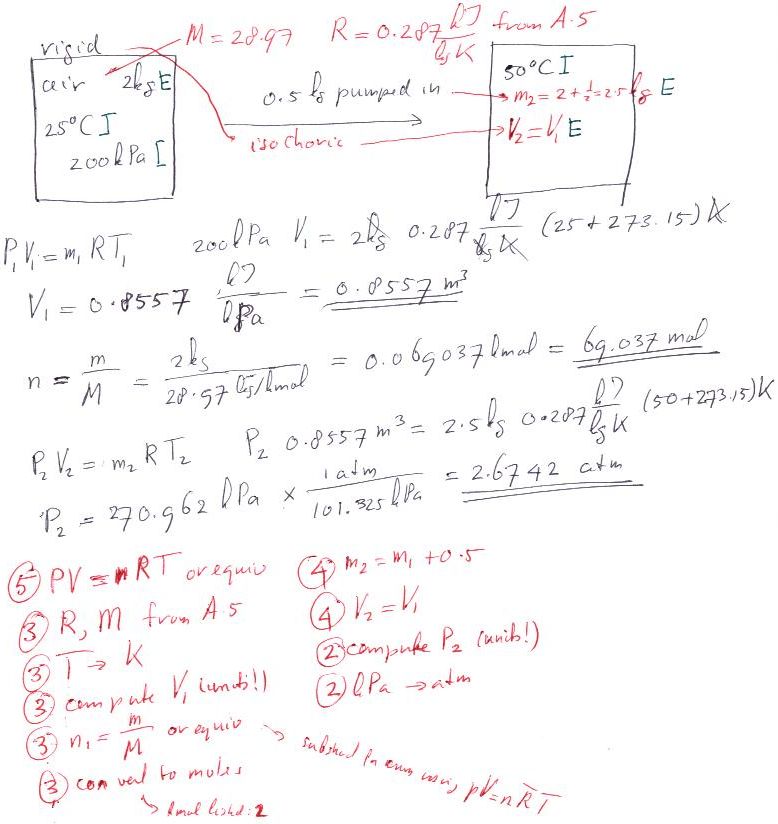 M = 28.97 R = 0.287 kJ/kg K from A.5
rigid
air 2kg E
25°C I
200 kPa I
0.5 kg pumped in
isochoric
50°C I
m₂ = 2 + ½ = 2.5 kg E
V₂ = V₁ E
P₁V₁ = m₁RT₁ 200 kPa V₁ = 2kg 0.287 kJ/kg K (25 + 273.15) K
V₁ = 0.8557 kJ/kPa = 0.8557 m³
n = m/M = 2kg/28.97 kg/kmol = 0.069037 kmol = 69.037 mol
P₂V₂ = m₂RT₂ P₂ 0.8557 m³ = 2.5 kg 0.287 kJ/kg K (50+273.15) K
P₂ = 270.962 kPa × 1 atm/101.325 kPa = 2.6742 atm
⑤ PV = nRT or equiv
③ R, M from A.5
③ T → K
③ compute V₁ (units!)
③ n₁ = m/M or equiv
③ convert to moles
→ kmol listed: 2
④ m₂ = m₁ + 0.5
④ V₂ = V₁
② compute P₂ (units!)
② kPa → atm
using pV = nR̅T